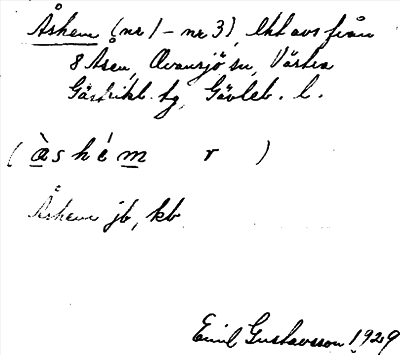 Åshem (nr 1 – nr 3), lht avs från
8 Åsen, Ovansjö sn, Västra
Gästrikl. tg, Gävleb. l.
(àshém r )
Åshem jb, kb
Emil Gustavsson 1929